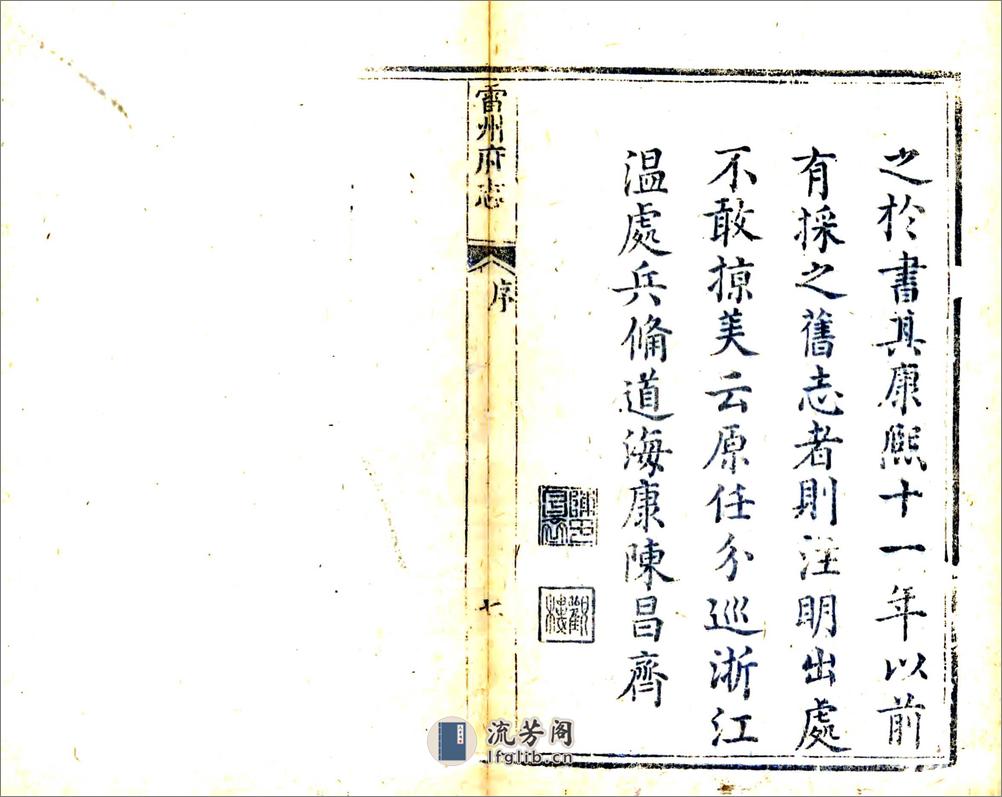 之於書其康熙十一年以前
有採之舊志者則注明出處
不敢掠美云原任分巡浙江
温處兵備道海康陳昌齊
雷州府志
序
七
流芳阁
lfglib.cn